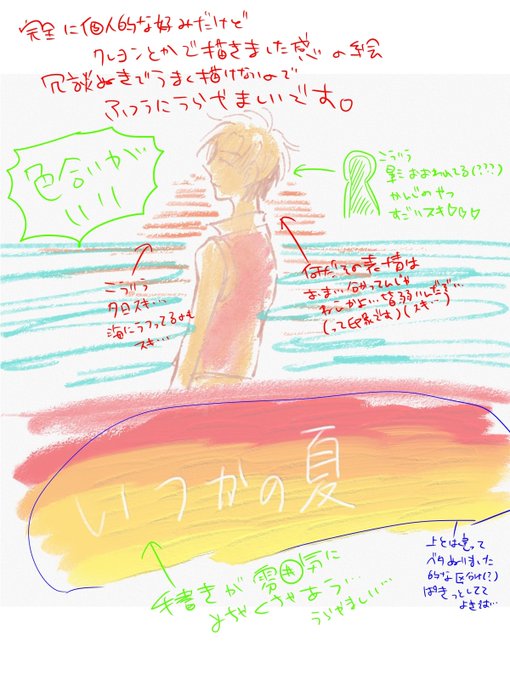 完全に個人的な好みだけど
クレヨンとかで描きました感の絵
冗談ぬきでうまく描けないので
ふつうにうらやましいです。
色合いが
いい
こういう
影におおわれてる(???)
かんじのやつ
すごいスキ♡♡♡
こういう
夕日スキ…
海にうつってるのも
スキ…
何だその表情は
おまい分かってんじゃ
ねーかよ…
(って印象です)(スキ…)
いつかの夏
手書きが雰囲気に
めちゃくちゃあう…
うらやましい…
上とは違って
ベタぬりしました
的な区分け(?)
ぱきっとしてて
よきは…